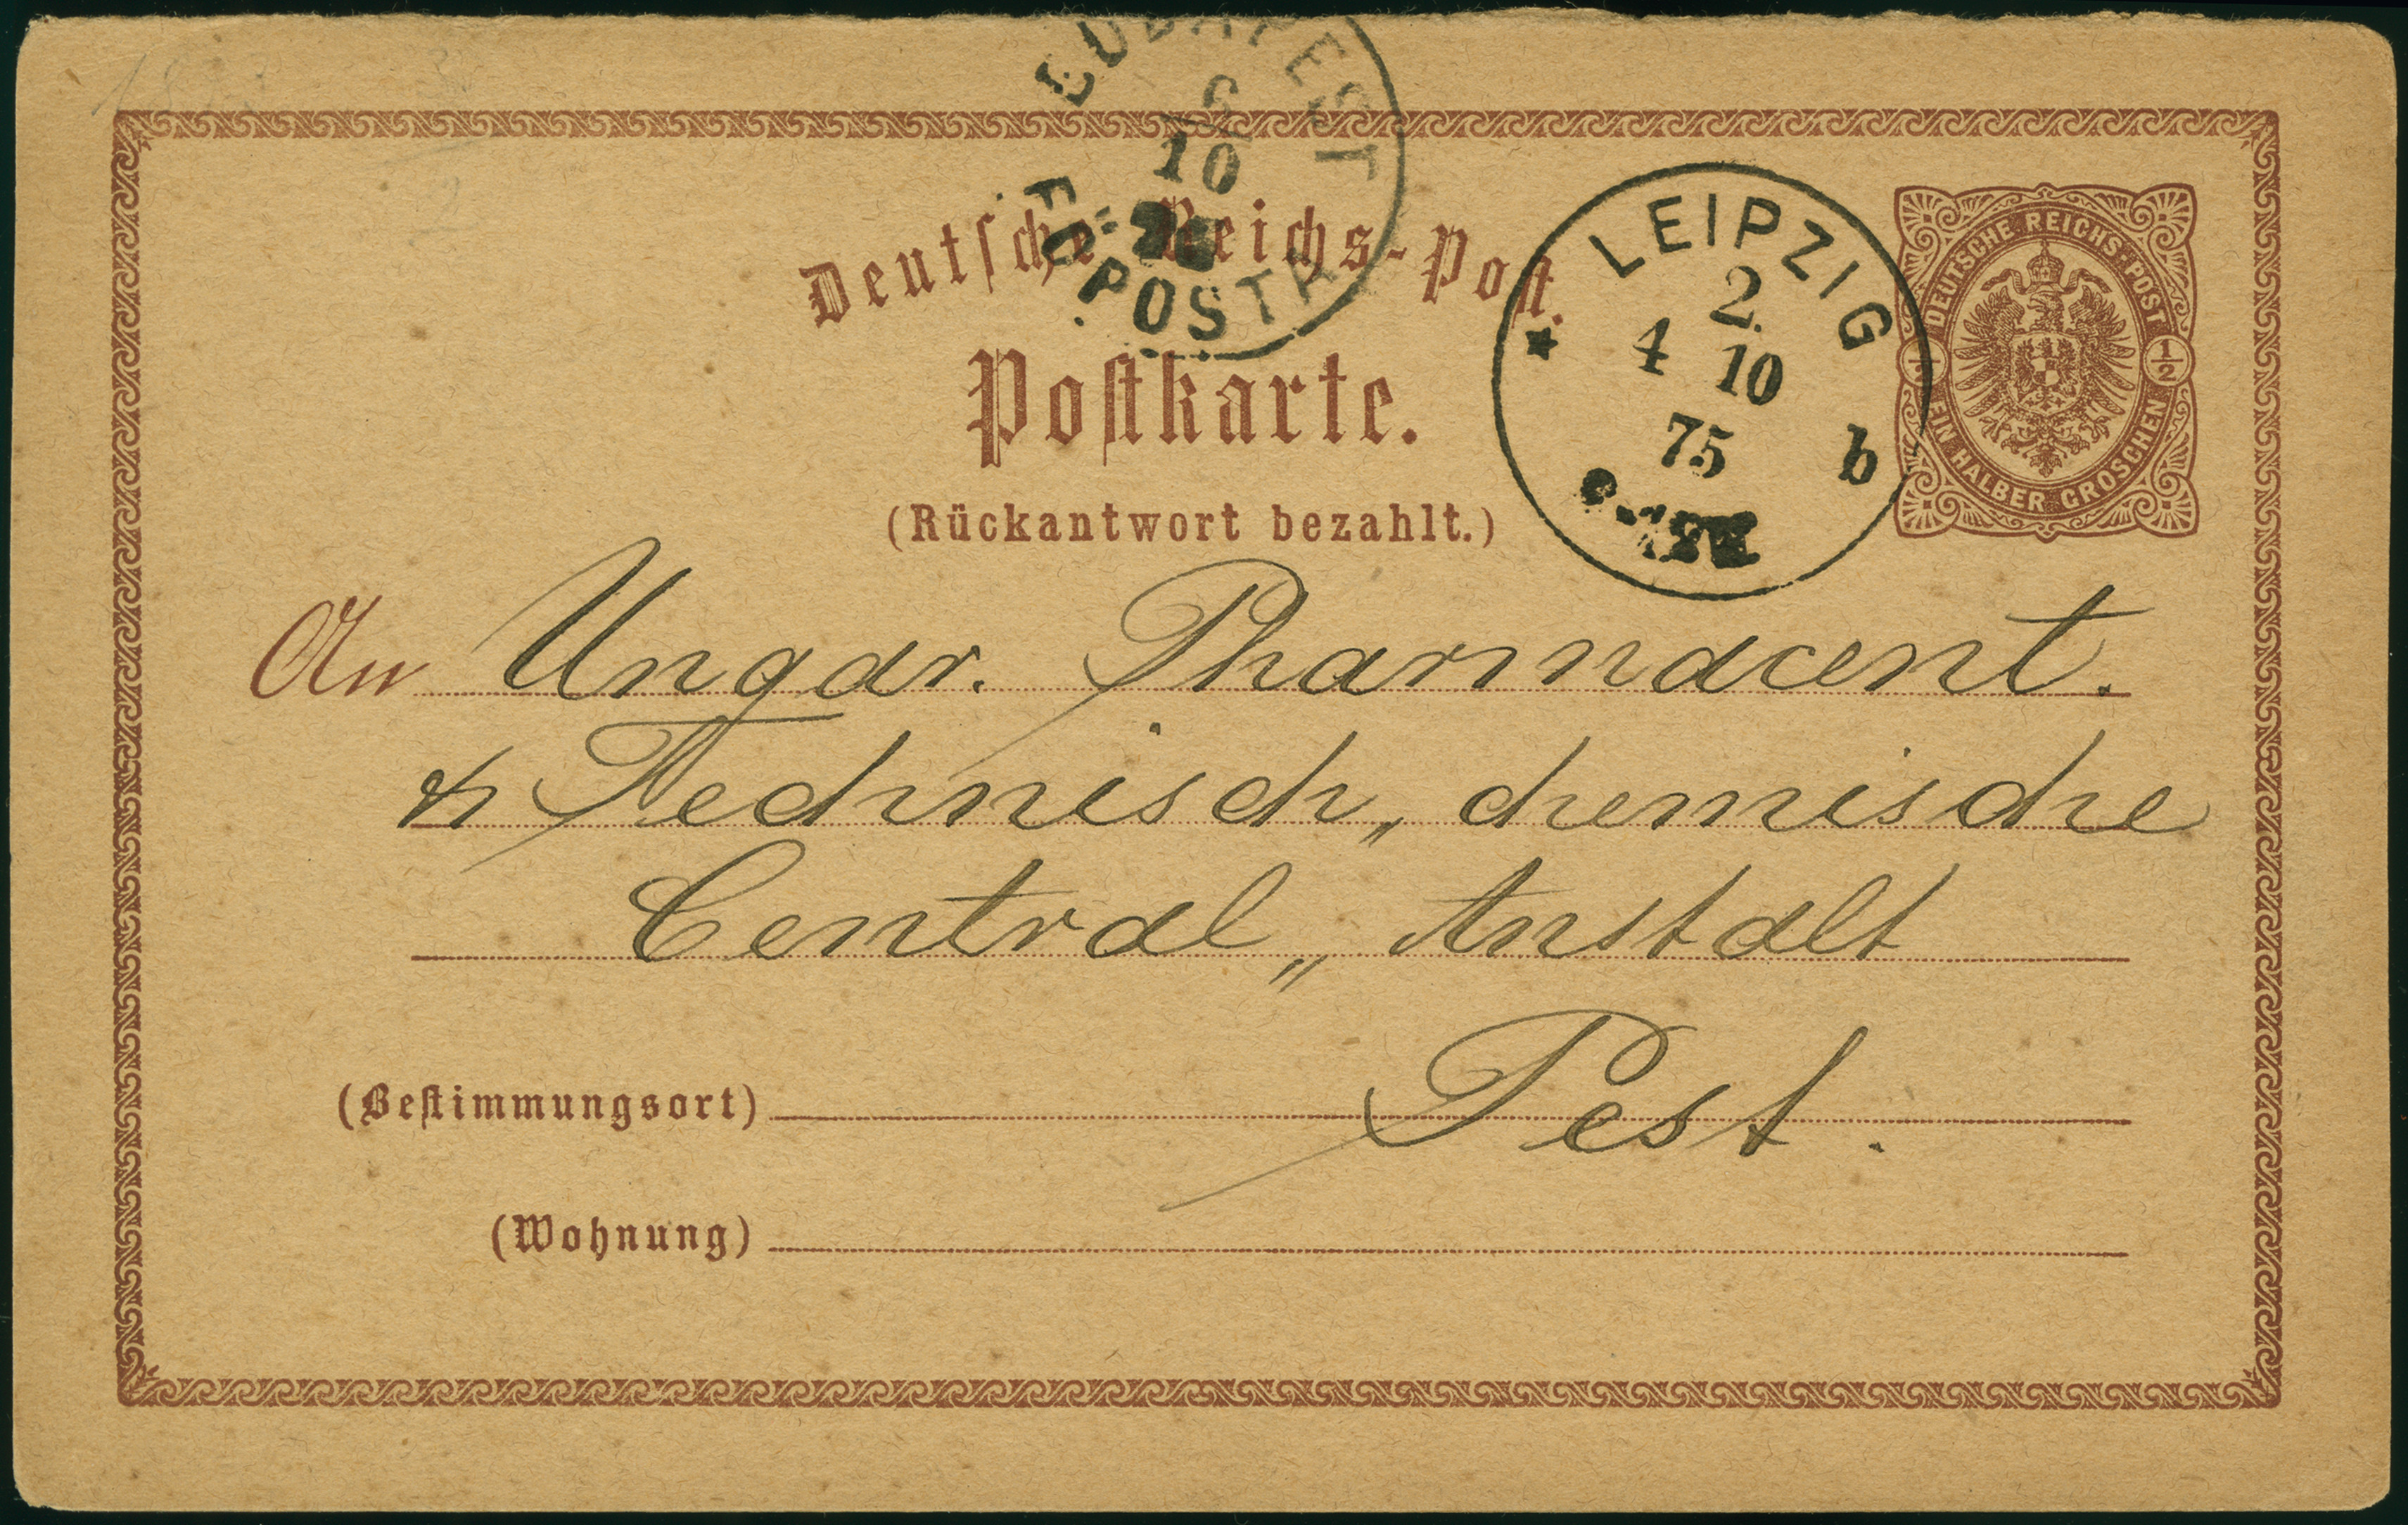 BUDAPEST
6
10
FŐ POSTA
Deutsche Reichs-Post.
LEIPZIG
2.
4 10
75
b
DEUTSCHE REICHS-POST
1/2 1/2
EIN HALBER GROSCHEN
Postkarte.
(Rückantwort bezahlt.)
An Ungar. Pharmaceut.
& Technisch„ chemische
Central„ Anstalt
(Bestimmungsort) Pest.
(Wohnung)